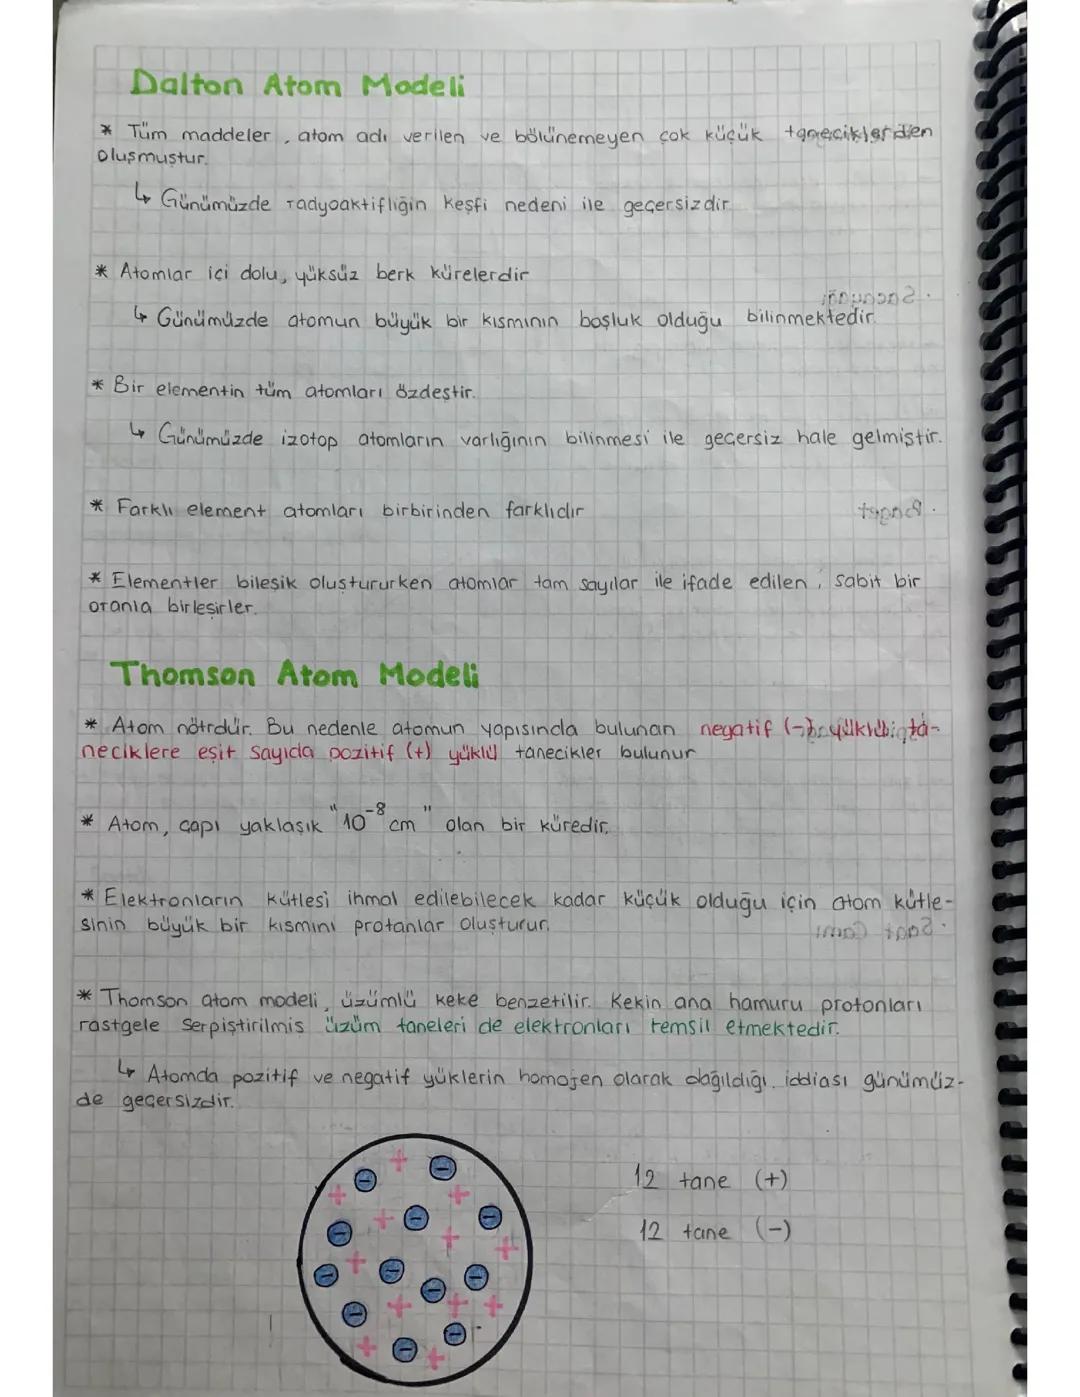 Dalton Atom Modeli
* Tüm maddeler, atom adı verilen ve bölünemeyen çok küçük taneciklerden
oluşmuştur.
↳ Günümüzde radyoaktifliğin keşfi nedeni ile geçersizdir.
* Atomlar içi dolu, yüksüz berk kürelerdir
↳ Günümüzde atomun büyük bir kısmının boşluk olduğu bilinmektedir.
* Bir elementin tüm atomları özdeştir.
↳ Günümüzde izotop atomların varlığının bilinmesi ile geçersiz hale gelmiştir.
* Farklı element atomları birbirinden farklıdır
* Elementler bileşik oluştururken atomlar tam sayılar ile ifade edilen, sabit bir
oranla birleşirler.
Thomson Atom Modeli
* Atom nötrdür. Bu nedenle atomun yapısında bulunan negatif (-) yüklü ta-
neciklere eşit sayıda pozitif (+) yüklü tanecikler bulunur
* Atom, çapı yaklaşık "10⁻⁸ cm" olan bir küredir.
* Elektronların kütlesi ihmal edilebilecek kadar küçük olduğu için atom kütle-
sinin büyük bir kısmını protonlar oluşturur.
* Thomson atom modeli, üzümlü keke benzetilir. Kekin ana hamuru protonları
rastgele serpiştirilmiş üzüm taneleri de elektronları temsil etmektedir.
↳ Atomda pozitif ve negatif yüklerin homojen olarak dağıldığı iddiası günümüz-
de geçersizdir.
12 tane (+)
12 tane (-)